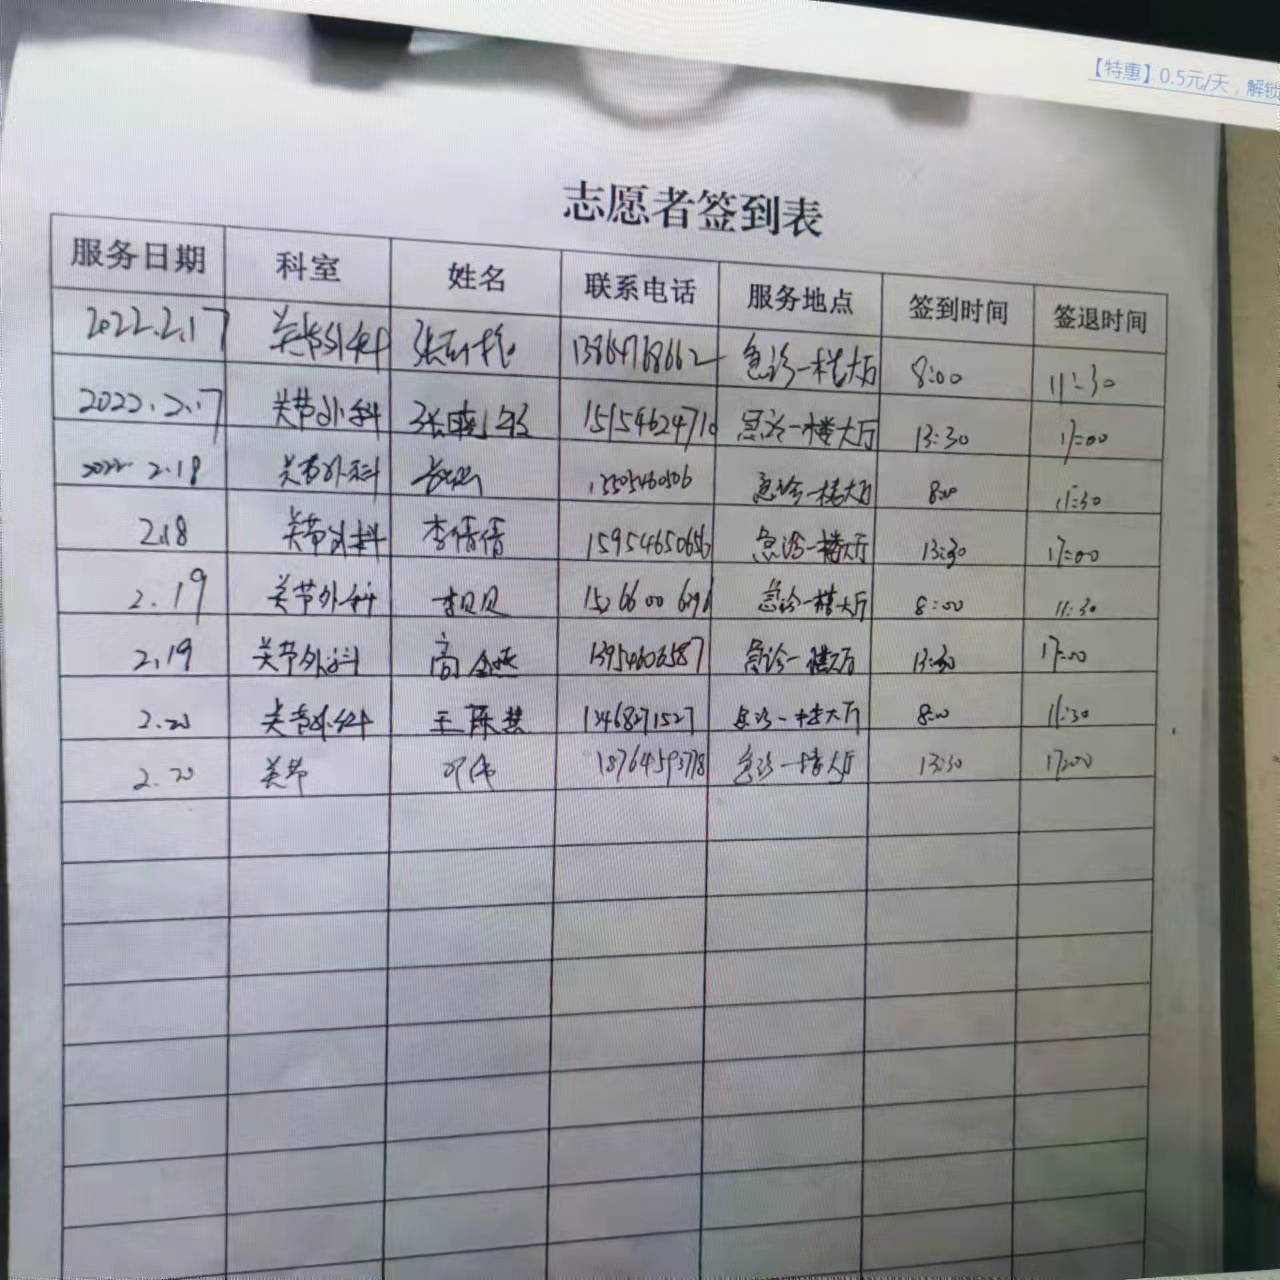 【特惠】0.5元/天，解锁
志愿者签到表
服务日期 科室 姓名 联系电话 服务地点 签到时间 签退时间
2022.2.17 关节外科 13864768662 急诊一楼大厅 8:00 11:30
2022.2.17 关节外科 15154624710 急诊一楼大厅 13:30 17:00
2022 2.18 关节外科 急诊一楼大厅 8:00 11:30
2.18 关节外科 李倩倩 15954650656 急诊一楼大厅 13:30 17:00
2.19 关节外科 李贝贝 急诊一楼大厅 8:00 11:30
2.19 关节外科 13954606587 急诊一楼大厅 13:30 17:00
2.20 关节外科 急诊一楼大厅 8:00 11:30
2.20 关节 急诊一楼大厅 13:30 17:00